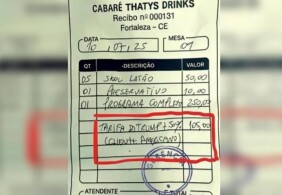 CABARÉ THATYS DRINKS
Recibo nº 000131
Fortaleza - CE
DATA
MESA
10 / 07 / 25
01
QT
DESCRIÇÃO
VALOR
05 SKOL LATÃO 50,00
01 PRESERVATIVO 10,00
01 PROGRAMA COMPLETO 250,00
TARIFA D.TRUMP + 50% 105,00
(CLIENTE AMERICANO)
ATENDENTE